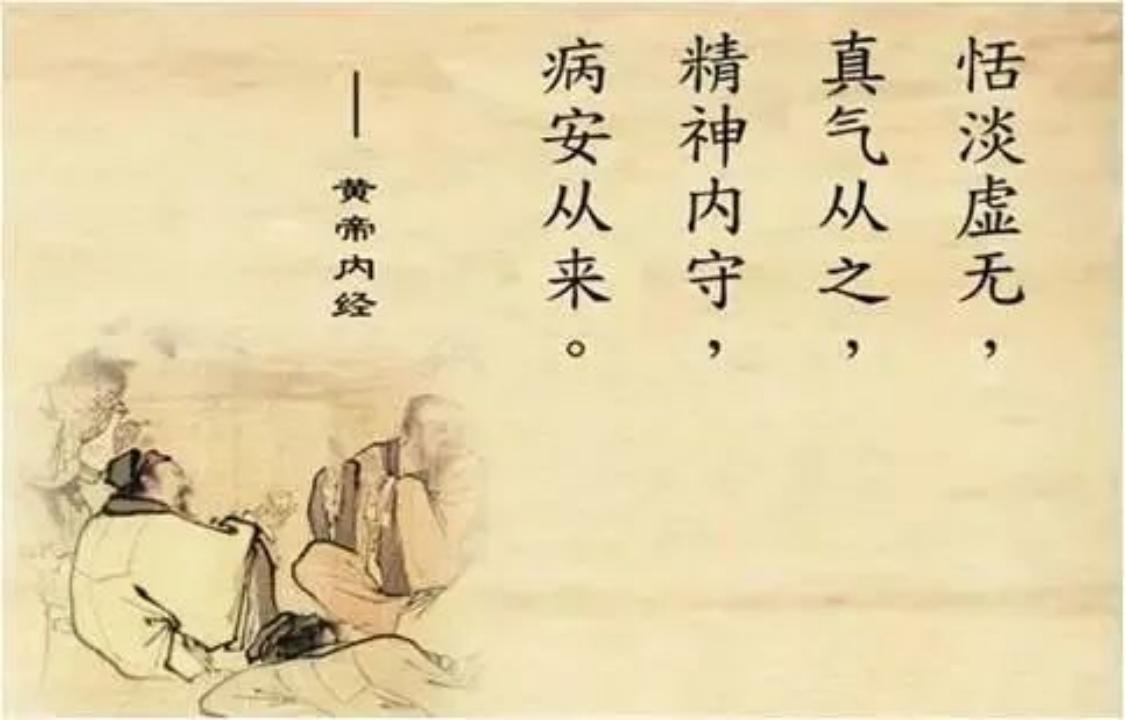 恬淡虚无，
真气从之，
精神内守，
病安从来。
—黄帝内经